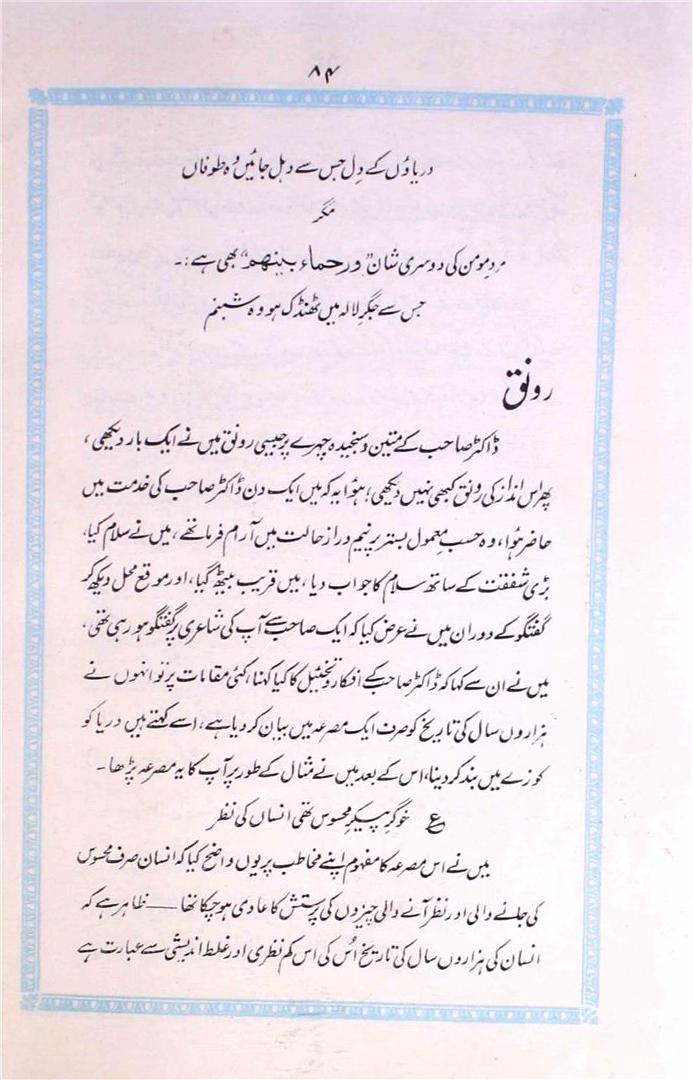 ۸۴
دریاؤں کے دل جس سے دہل جائیں وہ طوفاں
مگر
مردِ مومن کی دوسری شان "ورحماء بینھم" بھی ہے :۔
جس سے جگرِ لالہ میں ٹھنڈک ہو وہ شبنم
رونق
ڈاکٹر صاحب کے متین و سنجیدہ چہرے پر جیسی رونق میں نے ایک بار دیکھی ،
پھر اس انداز کی رونق کبھی نہیں دیکھی؛ ہوا یہ کہ میں ایک دن ڈاکٹر صاحب کی خدمت میں
حاضر ہُوا ، وہ حسبِ معمول بستر پر نیم دراز حالت میں آرام فرما تھے ، میں نے سلام کیا،
بڑی شفقت کے ساتھ سلام کا جواب دیا ، میں قریب بیٹھ گیا ، اور موقع محل دیکھ کر
گفتگو کے دوران میں نے عرض کیا کہ ایک صاحب سے آپ کی شاعری پر گفتگو ہو رہی تھی ،
میں نے ان سے کہا کہ ڈاکٹر صاحب کے افکار و تخئیل کا کیا کہنا، کئی مقامات پر تو انہوں نے
ہزاروں سال کی تاریخ کو صرف ایک مصرعہ میں بیان کر دیا ہے ، اسے کہتے ہیں دریا کو
کوزے میں بند کر دینا ، اس کے بعد میں نے مثال کے طور پر آپ کا یہ مصرعہ پڑھا ۔
ع خوگرِ پیکرِ محسوس تھی انساں کی نظر
میں نے اس مصرعہ کا مفہوم اپنے مخاطب پر یوں واضح کیا کہ انسان صرف محسوس
کی جانے والی اور نظر آنے والی چیزوں کی پرستش کا عادی ہو چکا تھا — ظاہر ہے کہ
انسان کی ہزاروں سال کی تاریخ اُس کی اس کم نظری اور غلط اندیشی سے عبارت ہے